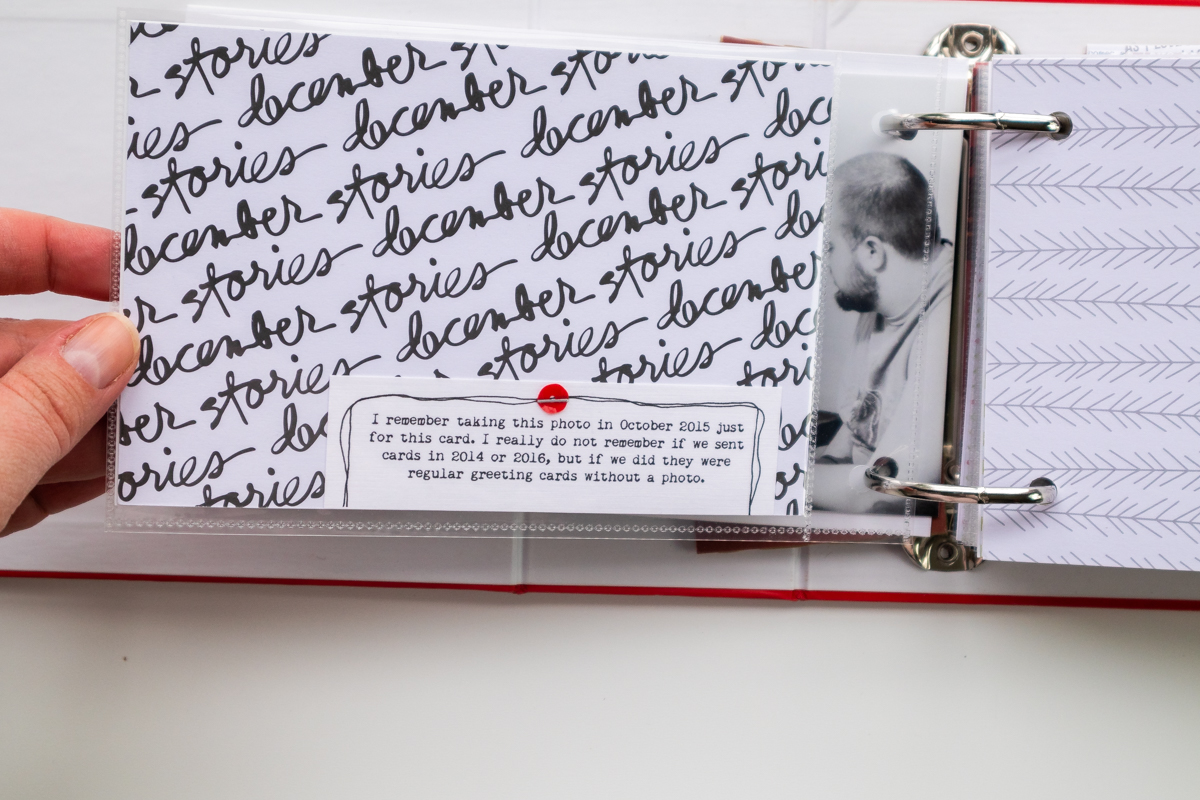 r stories
ies december st
stories december stories
december stories december sto
r stories december stories dec
december stories december stori
ber stories december stories de
ories de stories december
stories stories dec
stori
I remember taking this photo in October 2015 just
for this card. I really do not remember if we sent
cards in 2014 or 2016, but if we did they were
regular greeting cards without a photo.